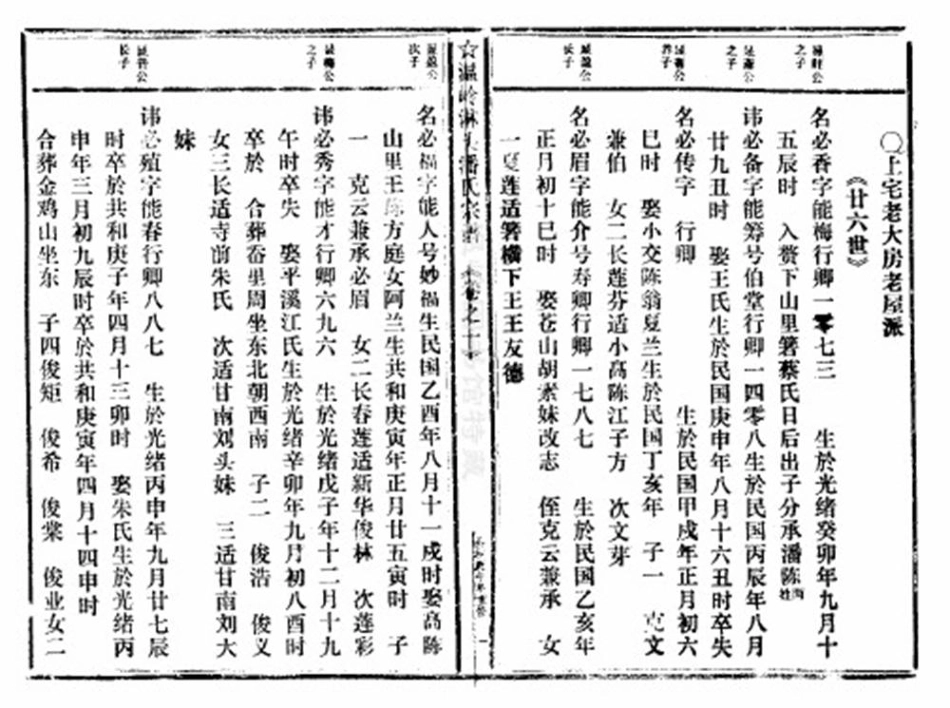 〇上宅老大房老屋派
《廿六世》
名必香字能梅行卿一零七三 生於光绪癸卯年九月十
五辰时 入赘下山里箬蔡氏日后出子分承潘陈两姓
之子
讳必备字能筹号伯堂行卿一四零八生於民国丙辰年八月
廿九丑时 娶王氏生於民国庚申年八月十六丑时卒失
之子
名必传字 行卿 生於民国甲戌年正月初六
巳时 娶小交陈翁夏兰生於民国丁亥年 子一 克文
兼伯 女二长莲芬适小高陈江子方 次文芽
养子
名必眉字能介号寿卿行卿一七八七 生於民国乙亥年
正月初十巳时 娶苍山胡素妹改志 侄克云兼承 女
一夏莲适箬横下王王友德
长子
☆温岭淋头潘氏宗谱
名必福字能人号妙福生民国乙酉年八月十一戌时娶高陈
山里王陈方庭女阿兰生共和庚寅年正月廿五寅时 子
一 克云兼承必眉 女二长春莲适新华俊林 次莲彩
次子
讳必秀字能才行卿六九六 生於光绪戊子年十二月十九
午时卒失 娶平溪江氏生於光绪辛卯年九月初八酉时
卒於 合葬岙里周坐东北朝西南 子二 俊浩 俊义
女三长适寺前朱氏 次适甘南刘头妹 三适甘南刘大
妹
之子
讳必殖字能春行卿八八七 生於光绪丙申年九月廿七辰
时卒於共和庚子年四月十三卯时 娶朱氏生於光绪丙
申年三月初九辰时卒於共和庚寅年四月十四申时
合葬金鸡山坐东 子四俊矩 俊希 俊棠 俊业女二
长子